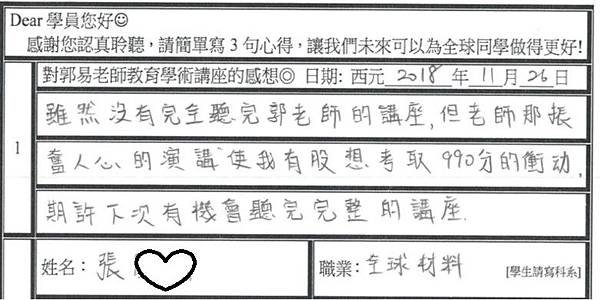 Dear 學員您好☺
感謝您認真聆聽，請簡單寫 3 句心得，讓我們未來可以為全球同學做得更好!
對郭易老師教育學術講座的感想◎ 日期: 西元 2018 年 11 月 26 日
1
雖然沒有完全聽完郭老師的講座，但老師那振
奮人心的演講使我有股想考取990分的衝动，
期許下次有機會聽完完整的講座.
姓名: 張
職業: 全球材料 [學生請寫科系]